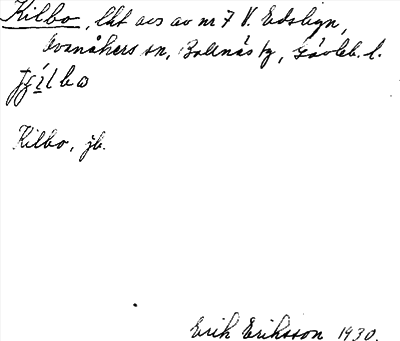 Kilbo, lht avs av nr 7 V. Edsbyn,
Ovanåkers sn, Bollnäs tg, Gävleb. l.
Kilbo, jb.
Erik Eriksson 1930.